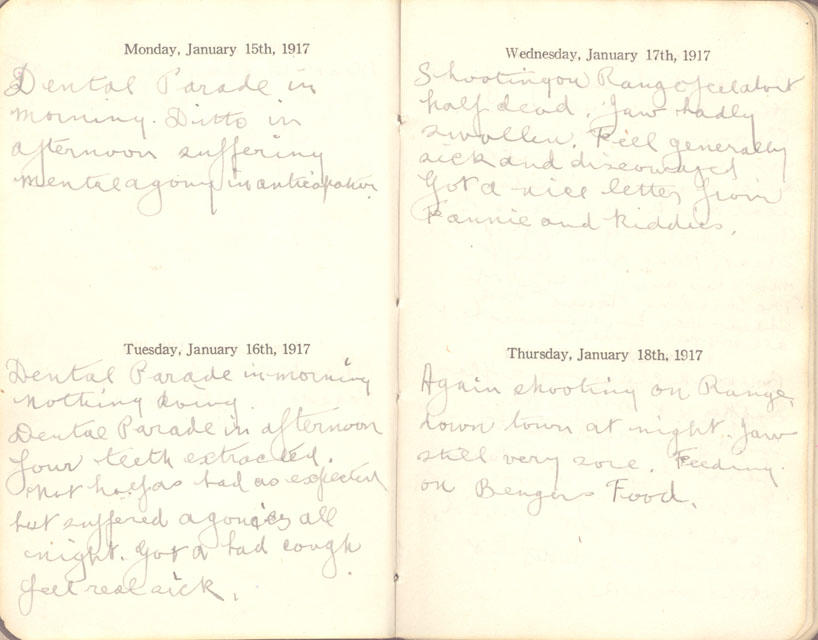 Monday, January 15th, 1917
Dental Parade in
morning. Ditto in
afternoon suffering
mental agony in anticipation
Tuesday, January 16th, 1917
Dental Parade in morning
nothing doing.
Dental Parade in afternoon
four teeth extracted.
Not half as bad as expected
but suffered agonies all
night. Got a bad cough
feel real sick.
Wednesday, January 17th, 1917
Shooting on Range feel about
half dead. Jaw badly
swollen. Feel generally
sick and discouraged
Got a nice letter from
Fannie and kiddies.
Thursday, January 18th, 1917
Again shooting on Range,
down town at night. Jaw
still very sore. Feeding
on Bengers Food.